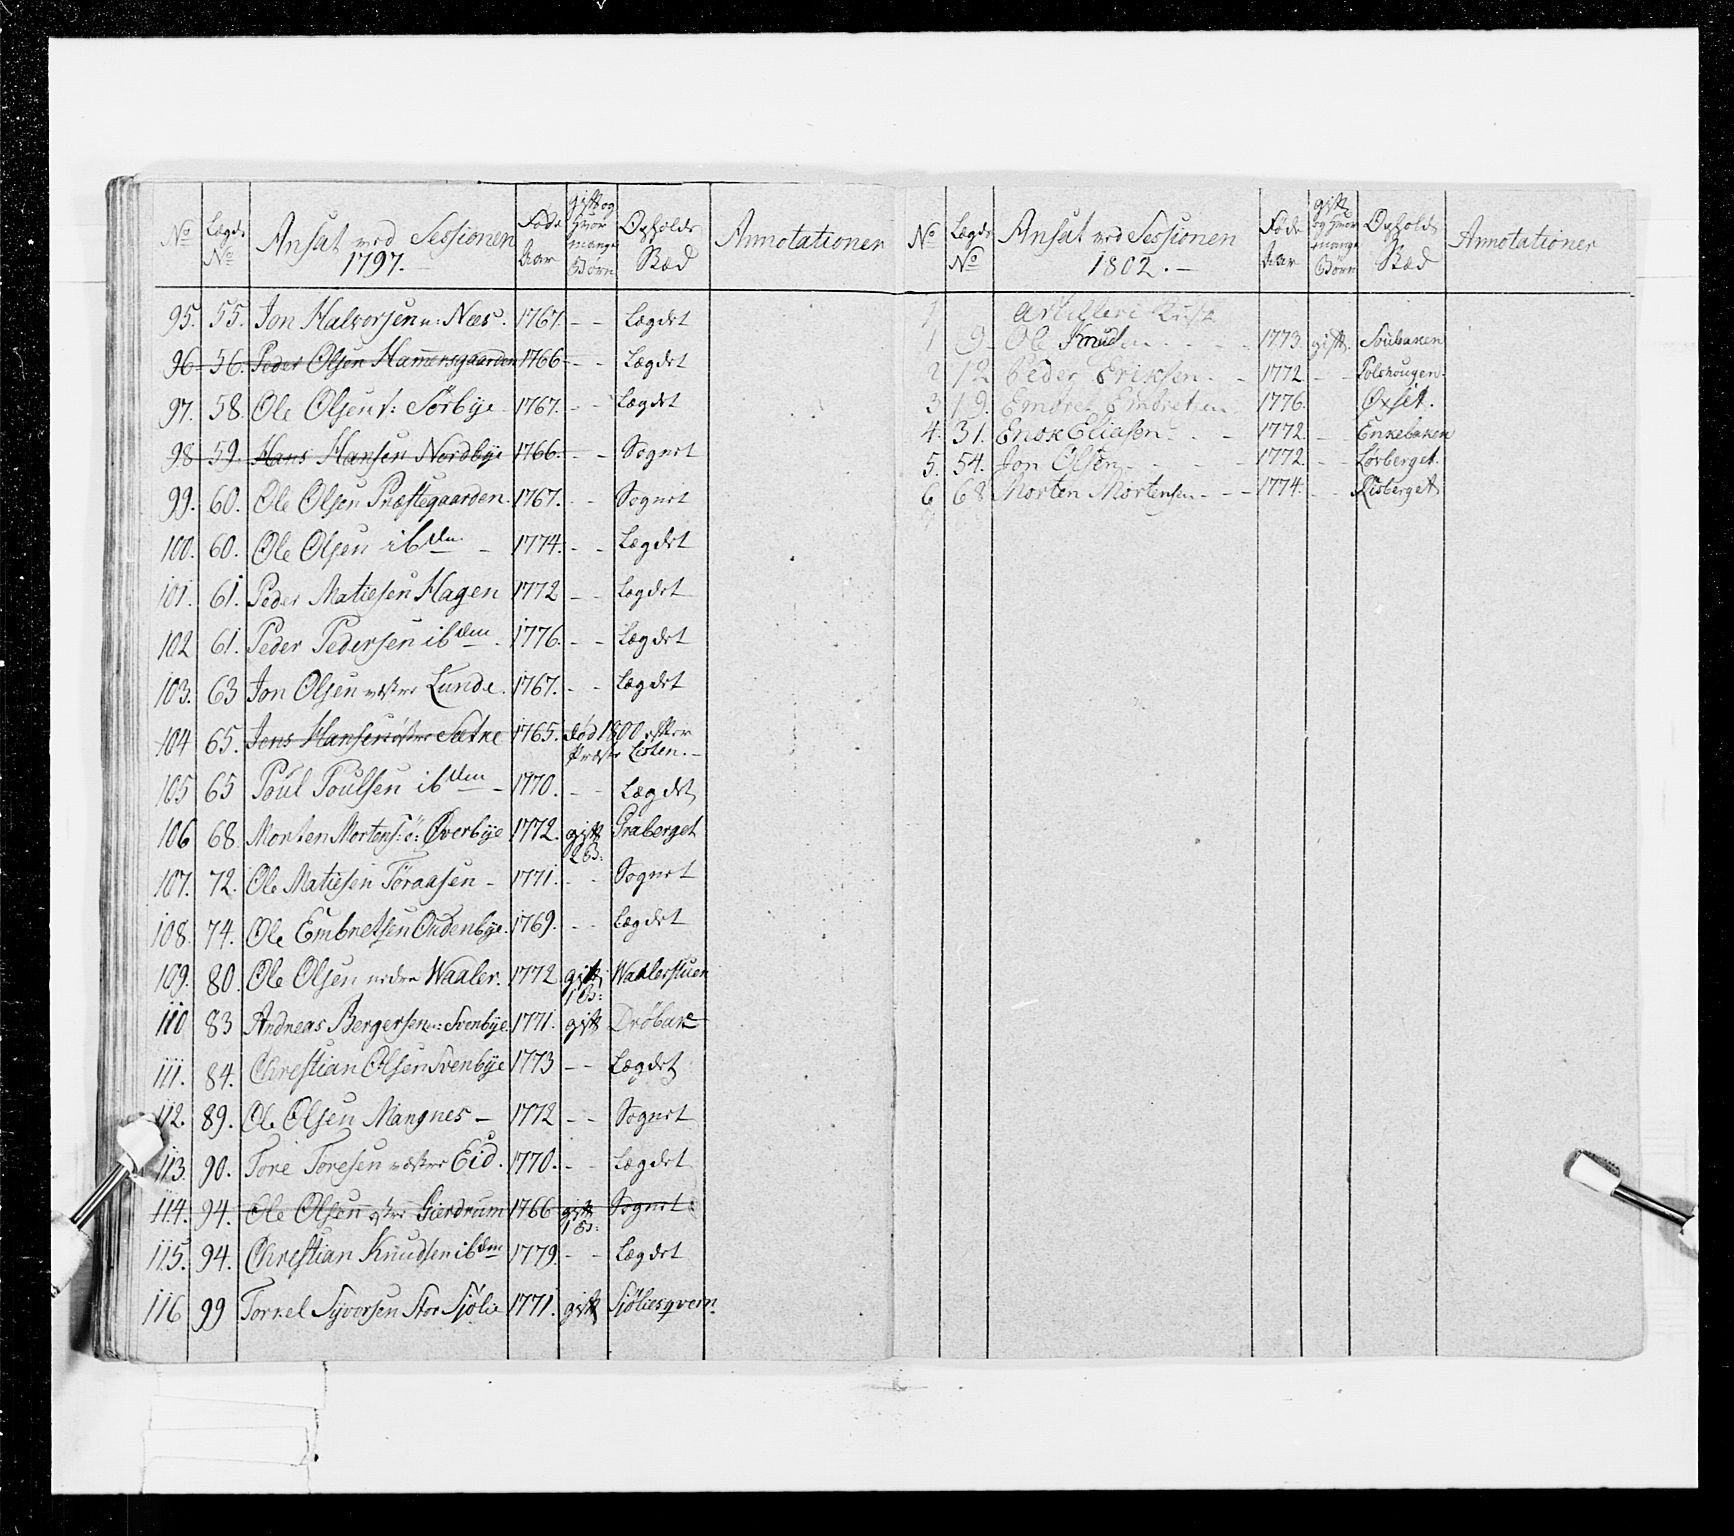 No | Lægds No | Ansat ved Sessionen 1797. | Føds Aar | gift og hvor mange Børn | Opholds Stæd | Annotationer
95. 55. Jon Halvorsen n: Næs. 1767. - - Lægdet
96 56. Peder Olsen Hammersgaarden 1766 - - Lægdet
97. 58. Ole Olsen v: Sørbye 1767. - - Lægdet
98 59. Hans Hansen Nordbye 1766. - - Sognet
99. 60. Ole Olsen Præstegaarden. 1767. - - Sognet
100. 60. Ole Olsen ibdm - 1774. - - Lægdet
101. 61. Peder Matiesen Hagen 1772 - - Lægdet
102 61. Peder Pedersen ibdem - 1776. - - Lægdet
103. 63 Jon Olsen vestre Lunde. 1767. - - Lægdet
104 65. Jens Hansen østre Sætre 1765. død 1800 efter
Præste Listen. -
105 65 Poul Poulsen ibdem - 1770. - - Lægdet
106 68. Morten Mortens: ø: Øverbye 1772. gift 2 B: Graberget
107. 72. Ole Matiesen Töraasen - 1771. - - Sognet
108. 74. Ole Embretsen Oudenbye. 1769. - - Lægdet
109. 80. Ole Olsen nedre Waaler. 1772 gift 1 B: Waalerstuen
110 83 Andreas Bergersen n: Svenbye. 1771. gift Drøbak
111. 84. Christian Olsen Svenbye 1773 - - Lægdet
112. 89. Ole Olsen Mangnes - 1772 - - Sognet
113. 90. Tore Toresen vestre Eid. 1770. - - Lægdet
114. 94. Ole Olsen østre Gierdrum 1766 gift 1 B: Sognet
115. 94. Christian Knudsen ibdem 1779. - - Lægdet
116 99 Torkel Syvorsen Stor Sjølie 1771. gift Sjøliesqvern.
No | Lægds No | Ansat ved Sessionen 1802. - | Føds Aar | gift og hvor mange Børn | Opholds Stæd | Annotationer
Artilleri Kusk
1 9. Ole Knudsen 1773. gift
2 12 Peder Eriksen. - 1772 - - Polshougen.
3 19. Embret Embretsen 1776. Øxset.
4. 31. Enok Eliasen - - - 1772. - Enkebaken
5. 54. Jon Olsen - - - 1772. - - Lørberget.
6 68 Morten Mortensen - - - 1774. - - Risberget